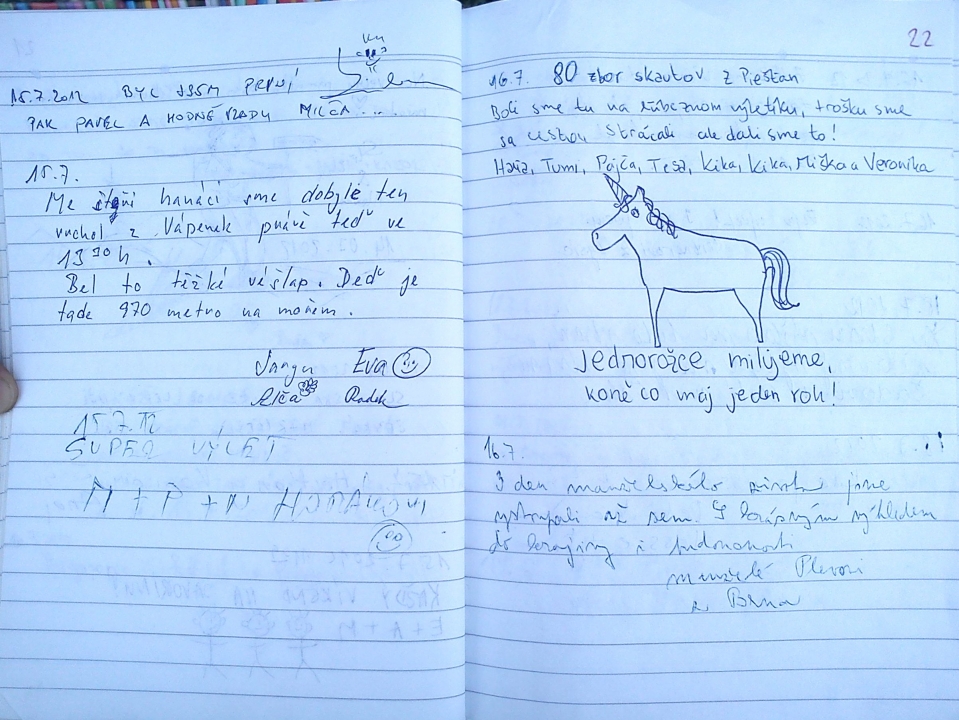 15.7.2012 BYL JSEM PRVNÍ
PAK PAVEL A HODNĚ VZADU MILČA....
15.7.
Me štyři hanáci sme dobylē ten
vrchol z Vápenek právě teď ve
13 30 h.
Bel to těžké véšlap. Deď je
tade 970 metro na mořem.
Eva
Alča Radek
15.7.12
SUPER VÝLET
M + P + N HORÁKOVI
22
16.7. 80 zbor skautov z Piešťan
Boli sme tu na ľúbeznom výletíku, trošku sme
sa cestou strácali ale dali sme to!
Tumi, Pajča, Tesa, Kika, Kika, Miška a Veronika
Jednorožce milujeme,
koně co maj jeden roh!
16.7.
3 den manželského života jsme
vystoupali až sem. S krásným výhledem
do krajiny i budoucnosti
manželé
z Brna